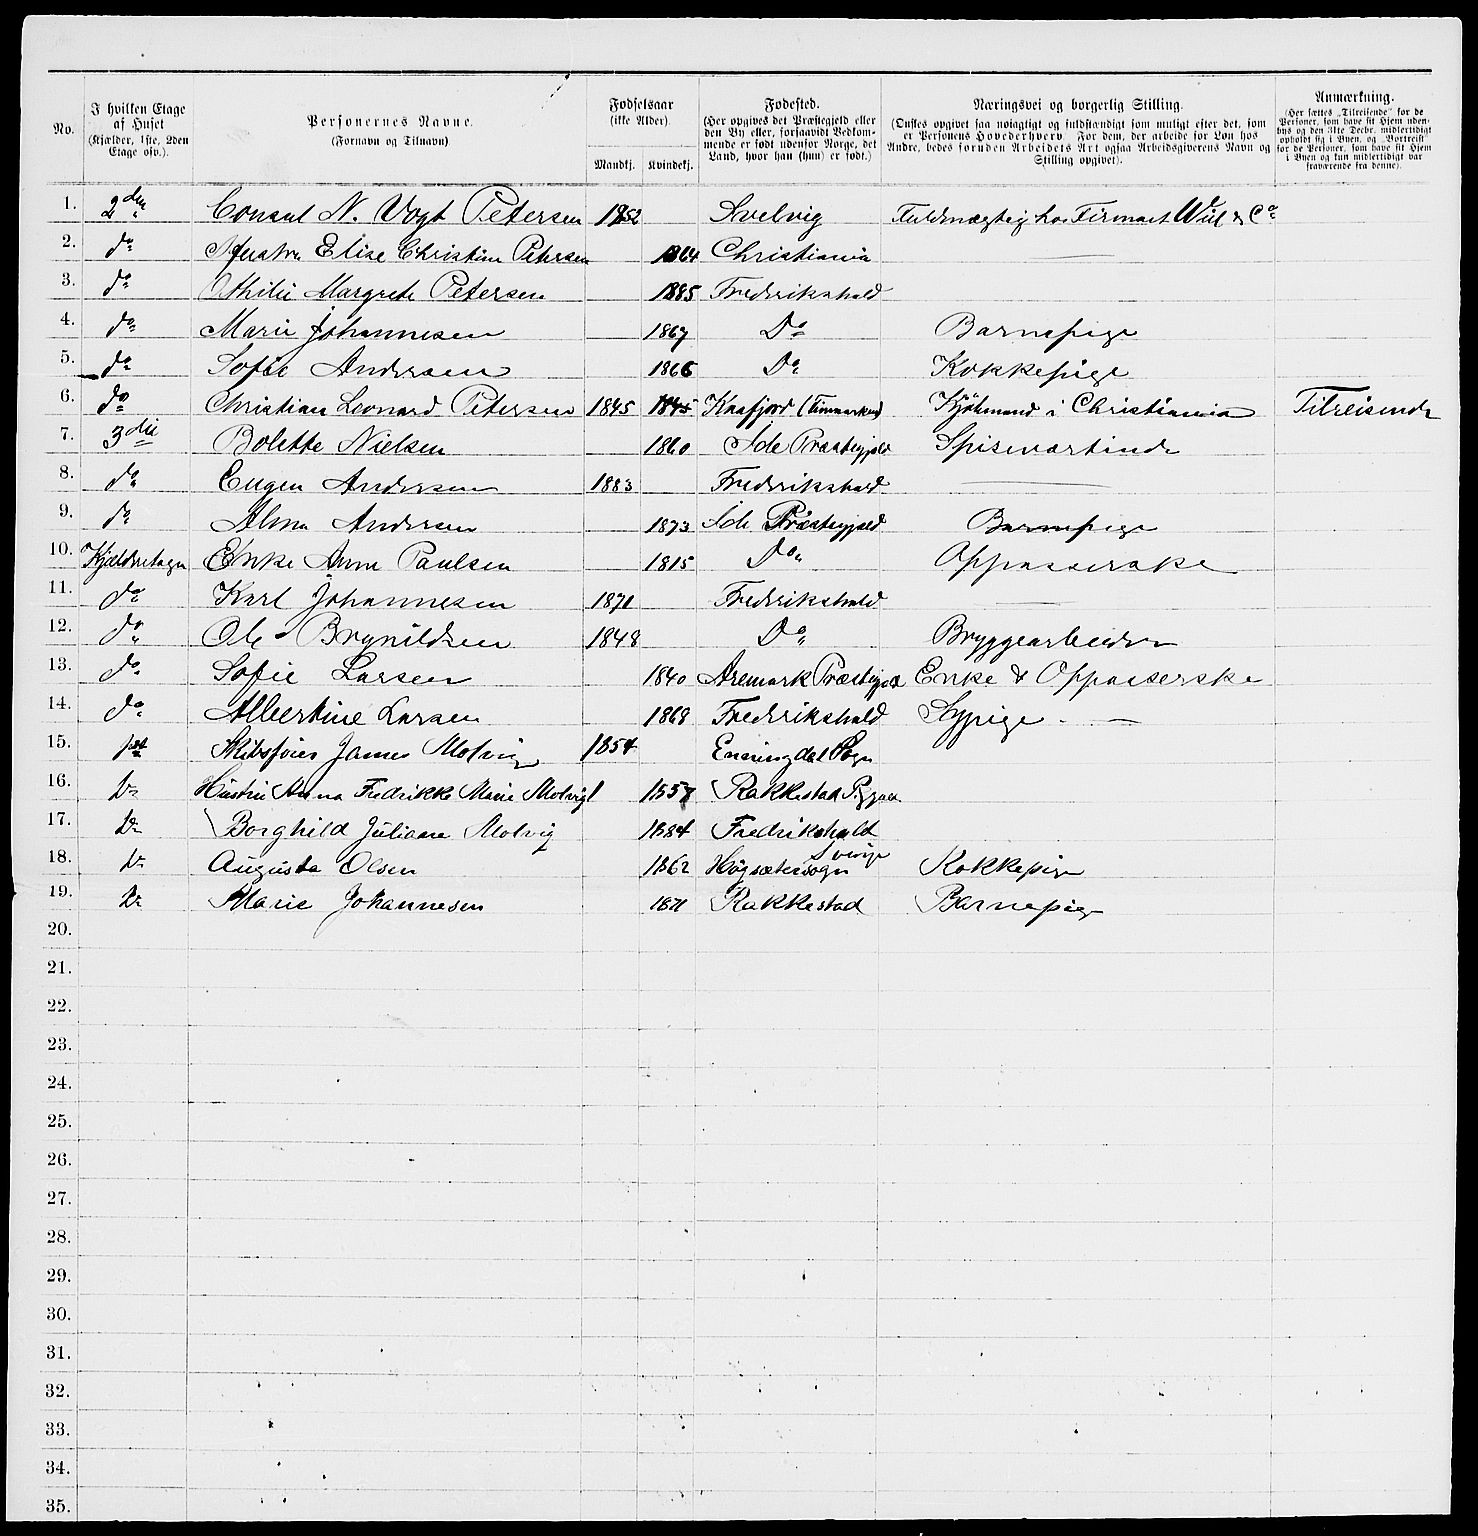 No. | I hvilken Etage af Huset (Kjælder, 1ste, 2den Etage osv.). | Personernes Navne. (Fornavn og Tilnavn) | Fødselsaar (ikke Alder). Mandkj. | Kvindekj. | Fødested. (Her opgives det Præstegjeld eller den By eller, forsaavidt Vedkommende er født udenfor Norge, det Land, hvor han (hun) er født.) | Næringsvei og borgerlig Stilling. (Ønskes opgivet saa nøiagtigt og fuldstændigt som muligt efter det, som er Personens Hovederhverv. For dem, der arbeide for Løn hos Andre, bedes foruden Arbeidets Art ogsaa Arbeidsgiverens Navn og Stilling opgivet). | Anmærkning. (Her sættes „Tilreisende" for de Personer, som have sit Hjem udenbys og den 31te Decbr. midlertidigt opholdt sig i Byen, og „Bortreist" for de Personer, som have sit Hjem i Byen og kun midlertidigt var fraværende fra denne).
1. 2den Consul N. Vogt Petersen 1852 Svelvig Fuldmægtig hos Firmaet Wiel & Co
2. do Elise Christine Petersen 1864 Christiania —
3. do Othilie Margrete Petersen 1885 Fredrikshald
4. do Marie Johannesen 1867 Do Barnepige
5. do Sofie Andersen 1866 Do Kokkepige
6. do Christian Leonard Petersen 1845 1845 Kaafjord (Finmarken) Kjøbmand i Christiania Tilreisende
7. 3die Bolette Nielsen 1860 Ide Præstegjeld Spiseværtinde
8. do Eugen Andersen 1883 Fredrikshald —
9. do Alma Andersen 1873 Ide Præstegjeld Barnepige
10. Kjælderetagen Enke Anne Paulsen 1815 Do Oppasserske
11. do Karl Johannesen 1871 Fredrikshald —
12. do Ole Brynildsen 1848 Do Bryggearbeider
13. do Sofie Larsen 1840 Aremark Præstegjeld Enke & Oppasserske
14. do Albertine Larsen 1868 Fredrikshald Sypige - —
15. 1ste Skibsfører James Molvig 1854 Enningdal Sogn
16. Do Hustru Anna Fredrikke Marie Molvig 1857 Rakkestad
17. Do Borghild Juliane Molvig 1884 Fredrikshald
18. Do Augusta Olsen 1862 Högsäter sogn Sverige Kokkepige
19. Do Marie Johannesen 1871 Rakkestad Barnepige
20.
21.
22.
23.
24.
25.
26.
27.
28.
29.
30.
31.
32.
33.
34.
35.